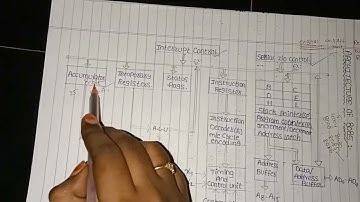 Interrupt Control
Serial I/O Control
Accumulator
Temporary
Registers
Status
Flags
Instruction
Register
B C
D E
H L
Stack pointer
Program counter
Increment/Decrement
Address latch
ALU
Instruction
Decoder
M/c Cycle
Encoding
Timing
And
Control unit
Address
Buffer
Data/
Address
Buffer
A8-A15
AD0-AD7
ARCHITECTURE OF 8085:-